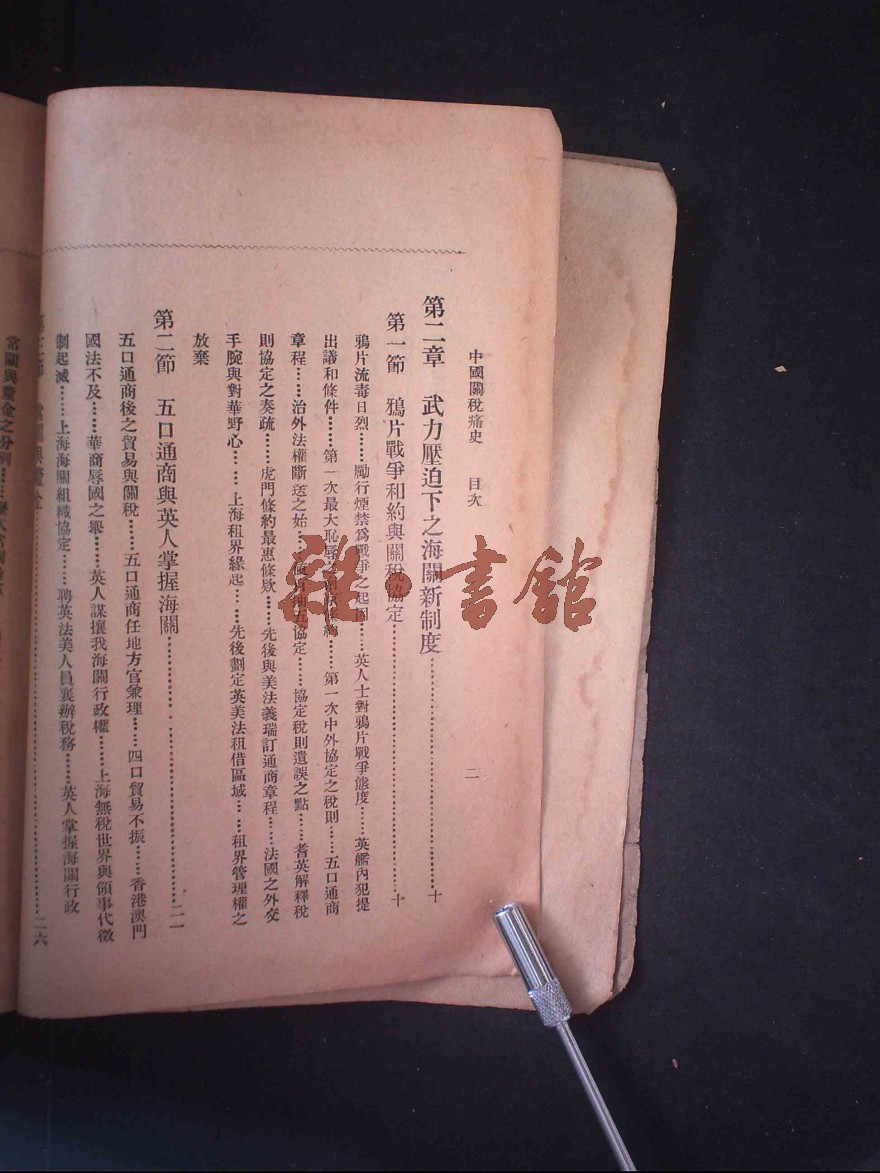 中國關稅痛史 目次 二
第二章 武力壓迫下之海關新制度……十
第一節 鴉片戰爭和約與關稅協定……十
鴉片流毒日烈……勵行煙禁爲戰爭之起因……英人士對鴉片戰爭態度……英艦內犯提
出議和條件……第一次最大恥辱……第一次中外協定之稅則……五口通商
章程……治外法權斷送之始……值百抽五協定……協定稅則遺誤之點……耆英解釋稅
則協定之奏疏……虎門條約最惠條欵……先後與美法義瑞訂通商章程……法國之外交
手腕與對華野心……上海租界緣起……先後劃定英美法租借區域……租界管理權之
放棄
第二節 五口通商與英人掌握海關……二一
五口通商後之貿易與關稅……五口通商任地方官兼理……四口貿易不振……香港澳門
國法不及……華商辱國之舉……英人謀攘我海關行政權……上海無稅世界與領事代徵
制起滅……上海海關組織協定……聘英法美人員襄辦稅務……英人掌握海關行政
第三節 常關與釐金……二六
常關與釐金之分別……
雜·書館